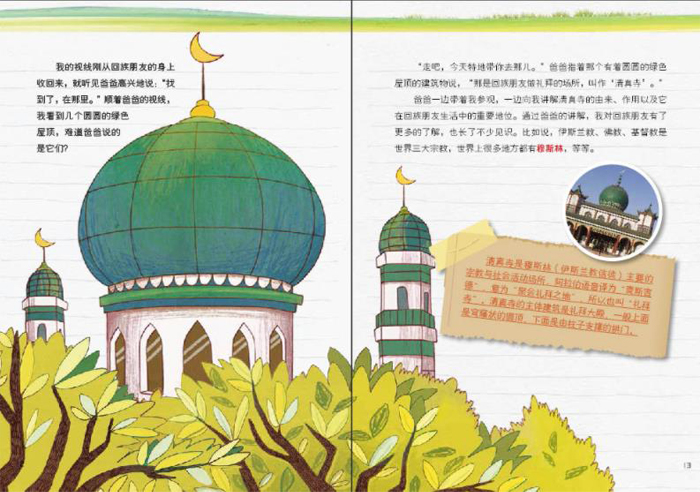 我的视线刚从回族朋友的身上
收回来，就听见爸爸高兴地说：“找
到了，在那里。”顺着爸爸的视线，
我看到几个圆圆的绿色
屋顶，难道爸爸说的
是它们？
“走吧，今天特地带你去那儿。”爸爸指着那个有着圆圆的绿色
屋顶的建筑物说，“那是回族朋友做礼拜的场所，叫作‘清真寺’。”
爸爸一边带着我参观，一边向我讲解清真寺的由来、作用以及它
在回族朋友生活中的重要地位。通过爸爸的讲解，我对回族朋友有了
更多的了解，也长了不少见识。比如说，伊斯兰教、佛教、基督教是
世界三大宗教，世界上很多地方都有穆斯林，等等。
清真寺是穆斯林（伊斯兰教信徒）主要的
宗教与社会活动场所，阿拉伯语音译为“麦斯吉
德”，意为“聚会礼拜之地”，所以也叫“礼拜
寺”。清真寺的主体建筑是礼拜大殿，一般上面
是穹窿状的圆顶，下面是由柱子支撑的拱门。
13